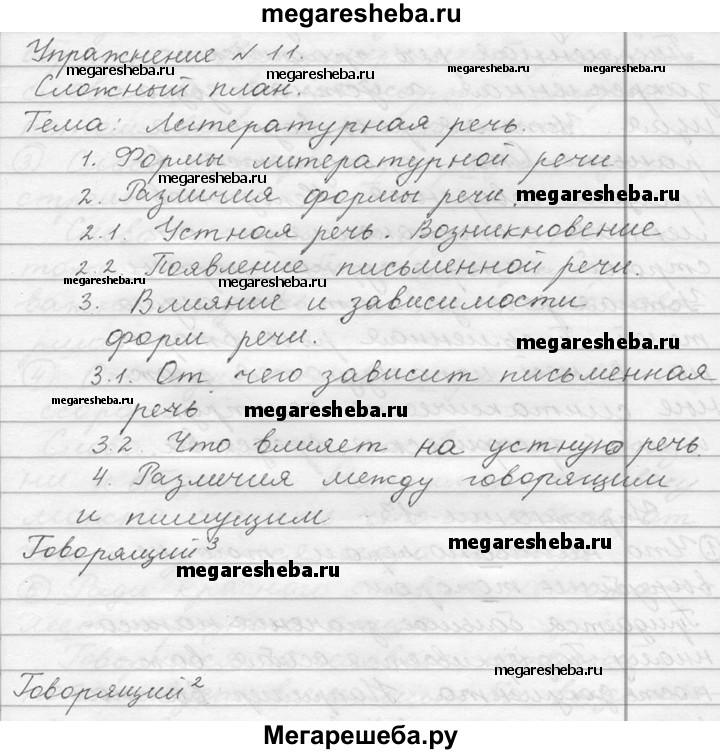 megaresheba.ru
Упражнение № 11.
megaresheba.ru megaresheba.ru megaresheba.ru megaresheba.ru
Сложный план.
Тема: Литературная речь.
1. Формы литературной речи
megaresheba.ru
2. Различия формы речи.
megaresheba.ru
2.1. Устная речь. Возникновение
2.2 Появление письменной речи.
megaresheba.ru
3. Влияние и зависимости
форм речи.
megaresheba.ru
3.1. От чего зависит письменная
megaresheba.ru
речь.
megaresheba.ru
3.2. Что влияет на устную речь.
4. Различия между говорящим
и пишущим
megaresheba.ru
Говорящий³
megaresheba.ru
megaresheba.ru
Говорящий²
Мегарешеба.ру